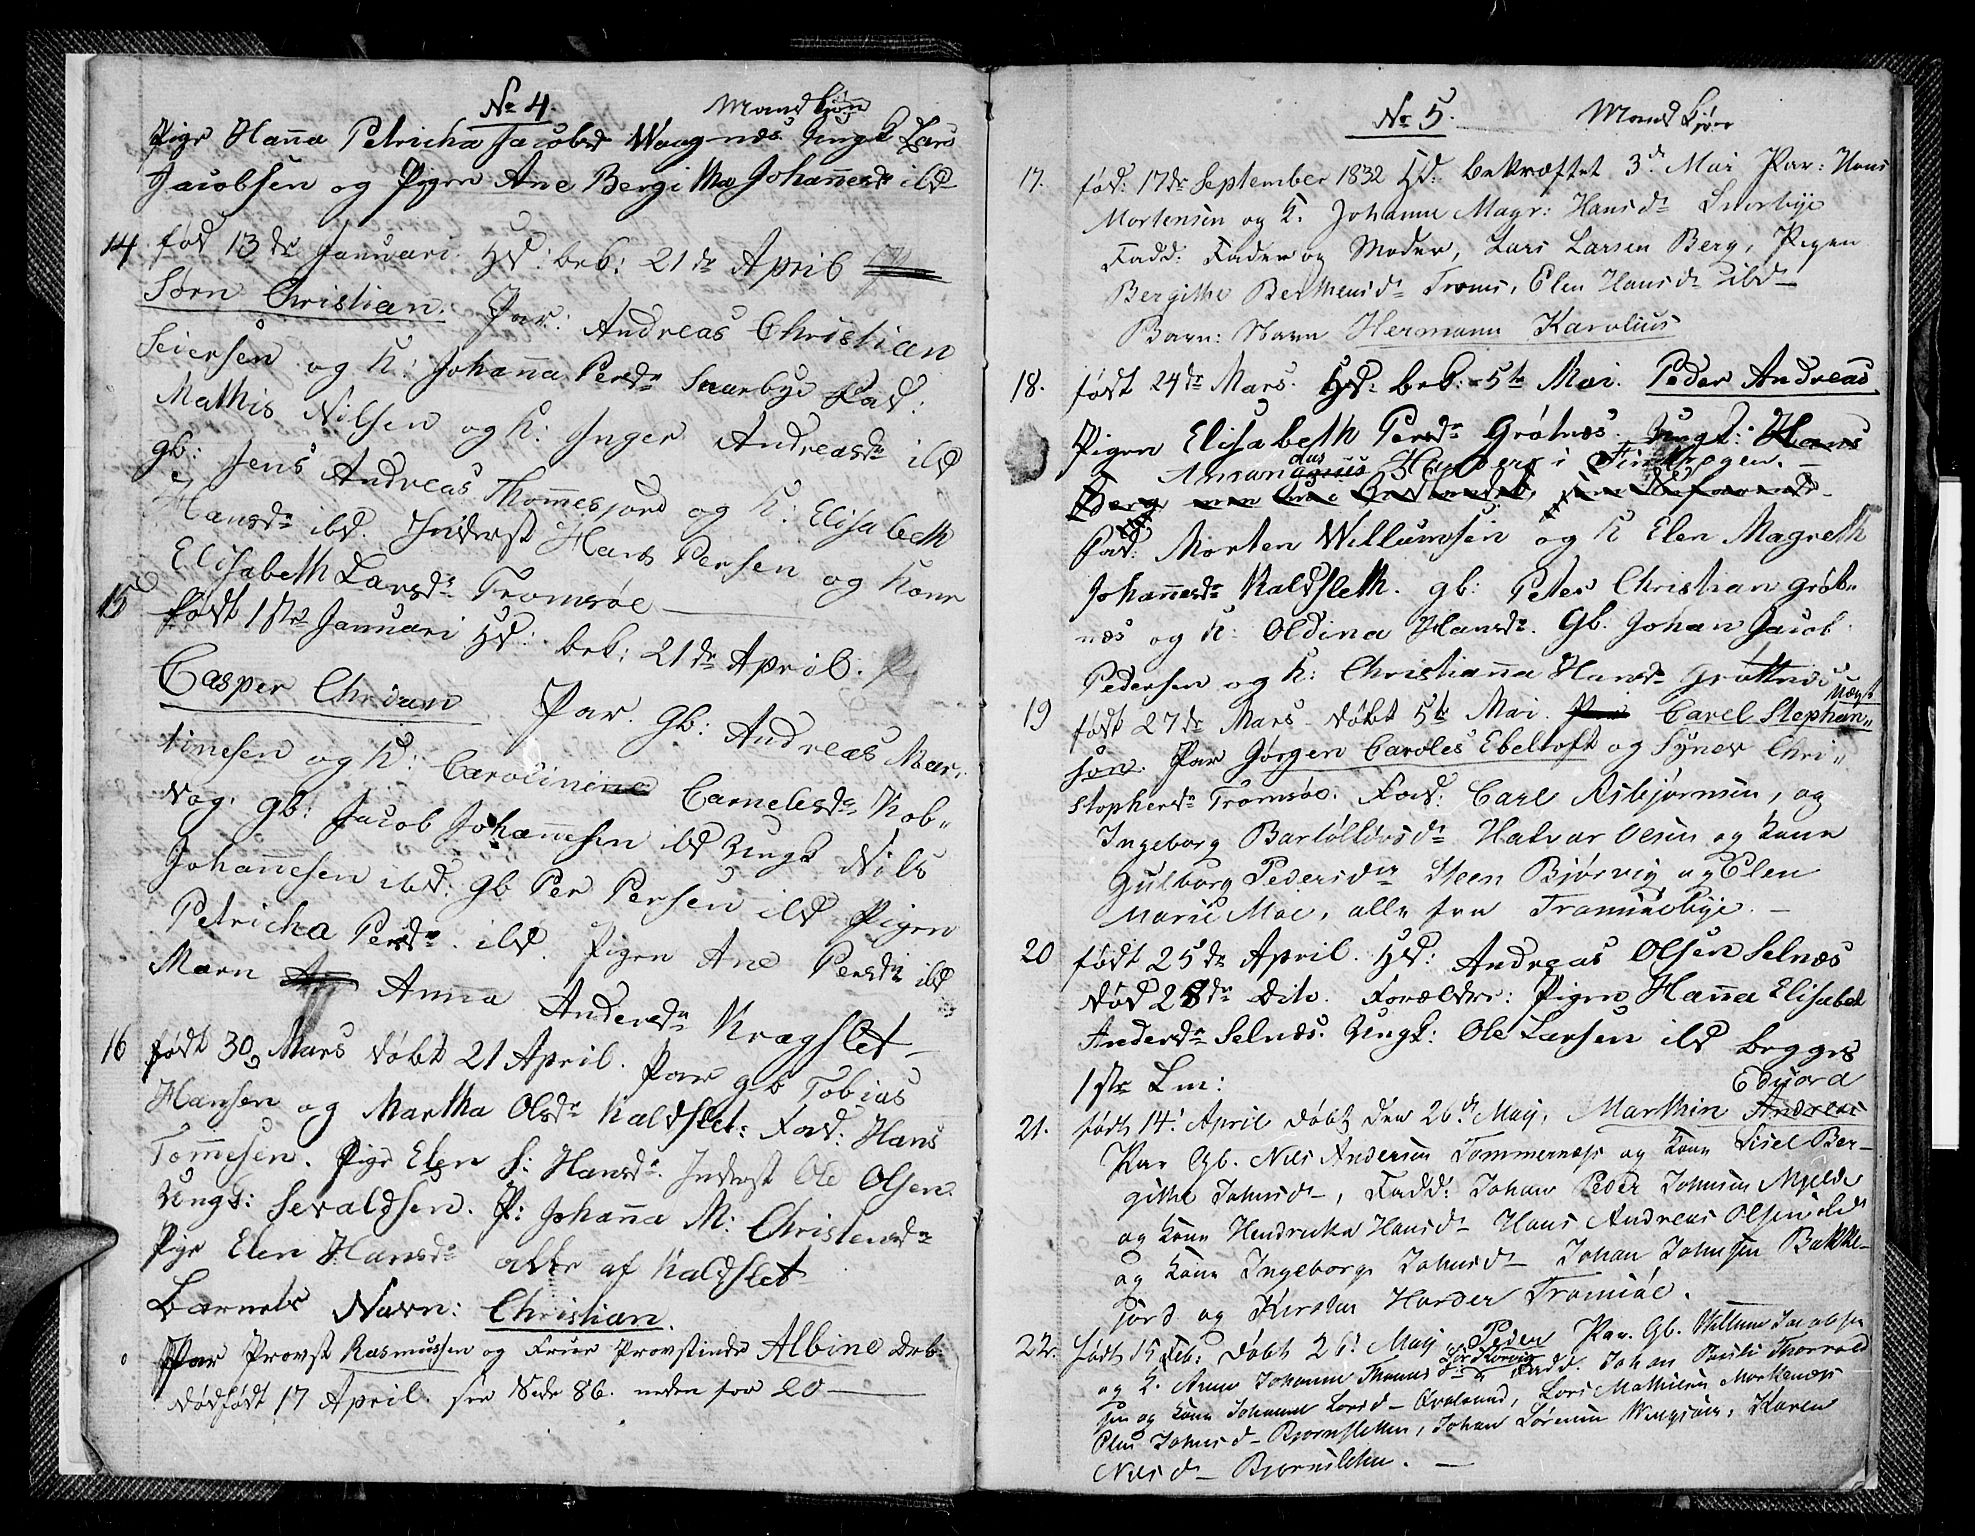 No 4. Mandkjøn
Pige Hanna Petricha Jacobsd Waagnæs Ungk Lars
Jacobsen og Pigen Ane Bergitha Johannesdr ibd
14 fød 13de Januari Hd: bek: 21de April
Sørn Christian. Par: Andreas Christian
Seiersen og K: Johanna Persdr Snarbye Fad:
Mathis Nilsen og K: Inger Andreasdr ibd
gb: Jens Andreas Thommesjord og K: Elisabeth
Hansdr ibd. Inderst Hans Persen og Kone
Elisabeth Larsdr Tromsøe
15 født 1ste Januari Hd: bek: 21de April.
Casper Chridian Par. gb: Andreas Mar-
tinesen og K: Carolinine Cornelisdr Kob-
vog. gb: Jacob Johannesen ibd Ungk Nils
Johannesen ibd: gb Per Persen ibd Pigen
Petricha Persdr. ibd. Pigen Ane Persdr ibd
Maren Anna Andersdr Kragslet
16 født 30 Mars døbt 21 April. Par gb Tobias
Hansen og Martha Olsdr Kaldslet: Fad: Hans
Tommesen. Pige Elen S: Hansdr. Inderst Ole Olsen
Ungk: Sevaldsen. P: Johanna M: Christensdr
Pige Elen Hansdr alle af Kaldslet
Barnets Navn: Christian.
Par Provst Rasmussen og Frue Provstinde Albine
dødfødt 17 April. see Side 86. neden for 20
No 5. Mandkjøn
17. fød: 17de September 1832 Hd: bekræftet 3de Mai Par: Hans
Mortensen og K. Johanne Magr: Hansdr Snerbye
Fadd: Fader og Moder, Lars Larsen Berg, Pigen
Bergithe Berthensdr Troms, Elen Hansdr ibd
Barn: Navn Hermann Karolius
18. født 24de Mars. Hd: bek: 5te Mai. Peder Andreas
Pigen Elisabeth Persdr Grøtnæs. Ungk: Hans
Amandus Hanberg i Finkrogen.
Berg
Fad: Morten Willumsen og K Elen Magreth
Johannesdr Kaldsleth. gb: Peter Christian Grøt-
næs og K: Oldina Hansdr. Gb: Johan Jacob
Pedersen og K: Christianna Hansdr Grøttnæs
19 født 27de Mars døbt 5te Mai. Par Carel Stephan
søn. Par Jørgen Caroles Ebeltoft og Synev Chri-
stophersdr Tromsøe. Fad: Carl Asbjørnsen, og
Ingeborg Bartollovsdr Halvor Olsen og Kone
Gulborg Pedersdr Steen Bjørvig og Elen
Marie Moe, alle fra Tromsøebye.
20 født 25de April. Hd: Andreas Olsen Selnæs
død 28de dito. Forældre: Pigen Hanna Elisabet
Andersdr Selnæs. Ungk: Ole Larsen ibd begges
1ste Lm:
Eduard
21. født 14. April døbt den 26de May, Marthin Andreas
Par Gb. Nils Andersen Tommernæss og Kone Sisel Ber-
githe Johnsdr, Fadd: Johan Peder Johnsen Mjelde
og Kone Hendrikka Hansdr Hans Andreas Olsen ibd
og Kone Ingeborg Johnsdr Johan Johnsen Bakke-
jord og Kirsten Harder Tromsøe.
22. født 15 Feb: døbt 26. May Peder Par. Gb. Willum Jacobsen
og K. Anne Johanne Thomasdr Fadd. Johan
sen og Kone Johanne Larsd Qvalsund, Lars Mathisen
Elen Johnsd Bjørnsletten, Johan Sørensen Karen
Nilsd Bjørnsletten.